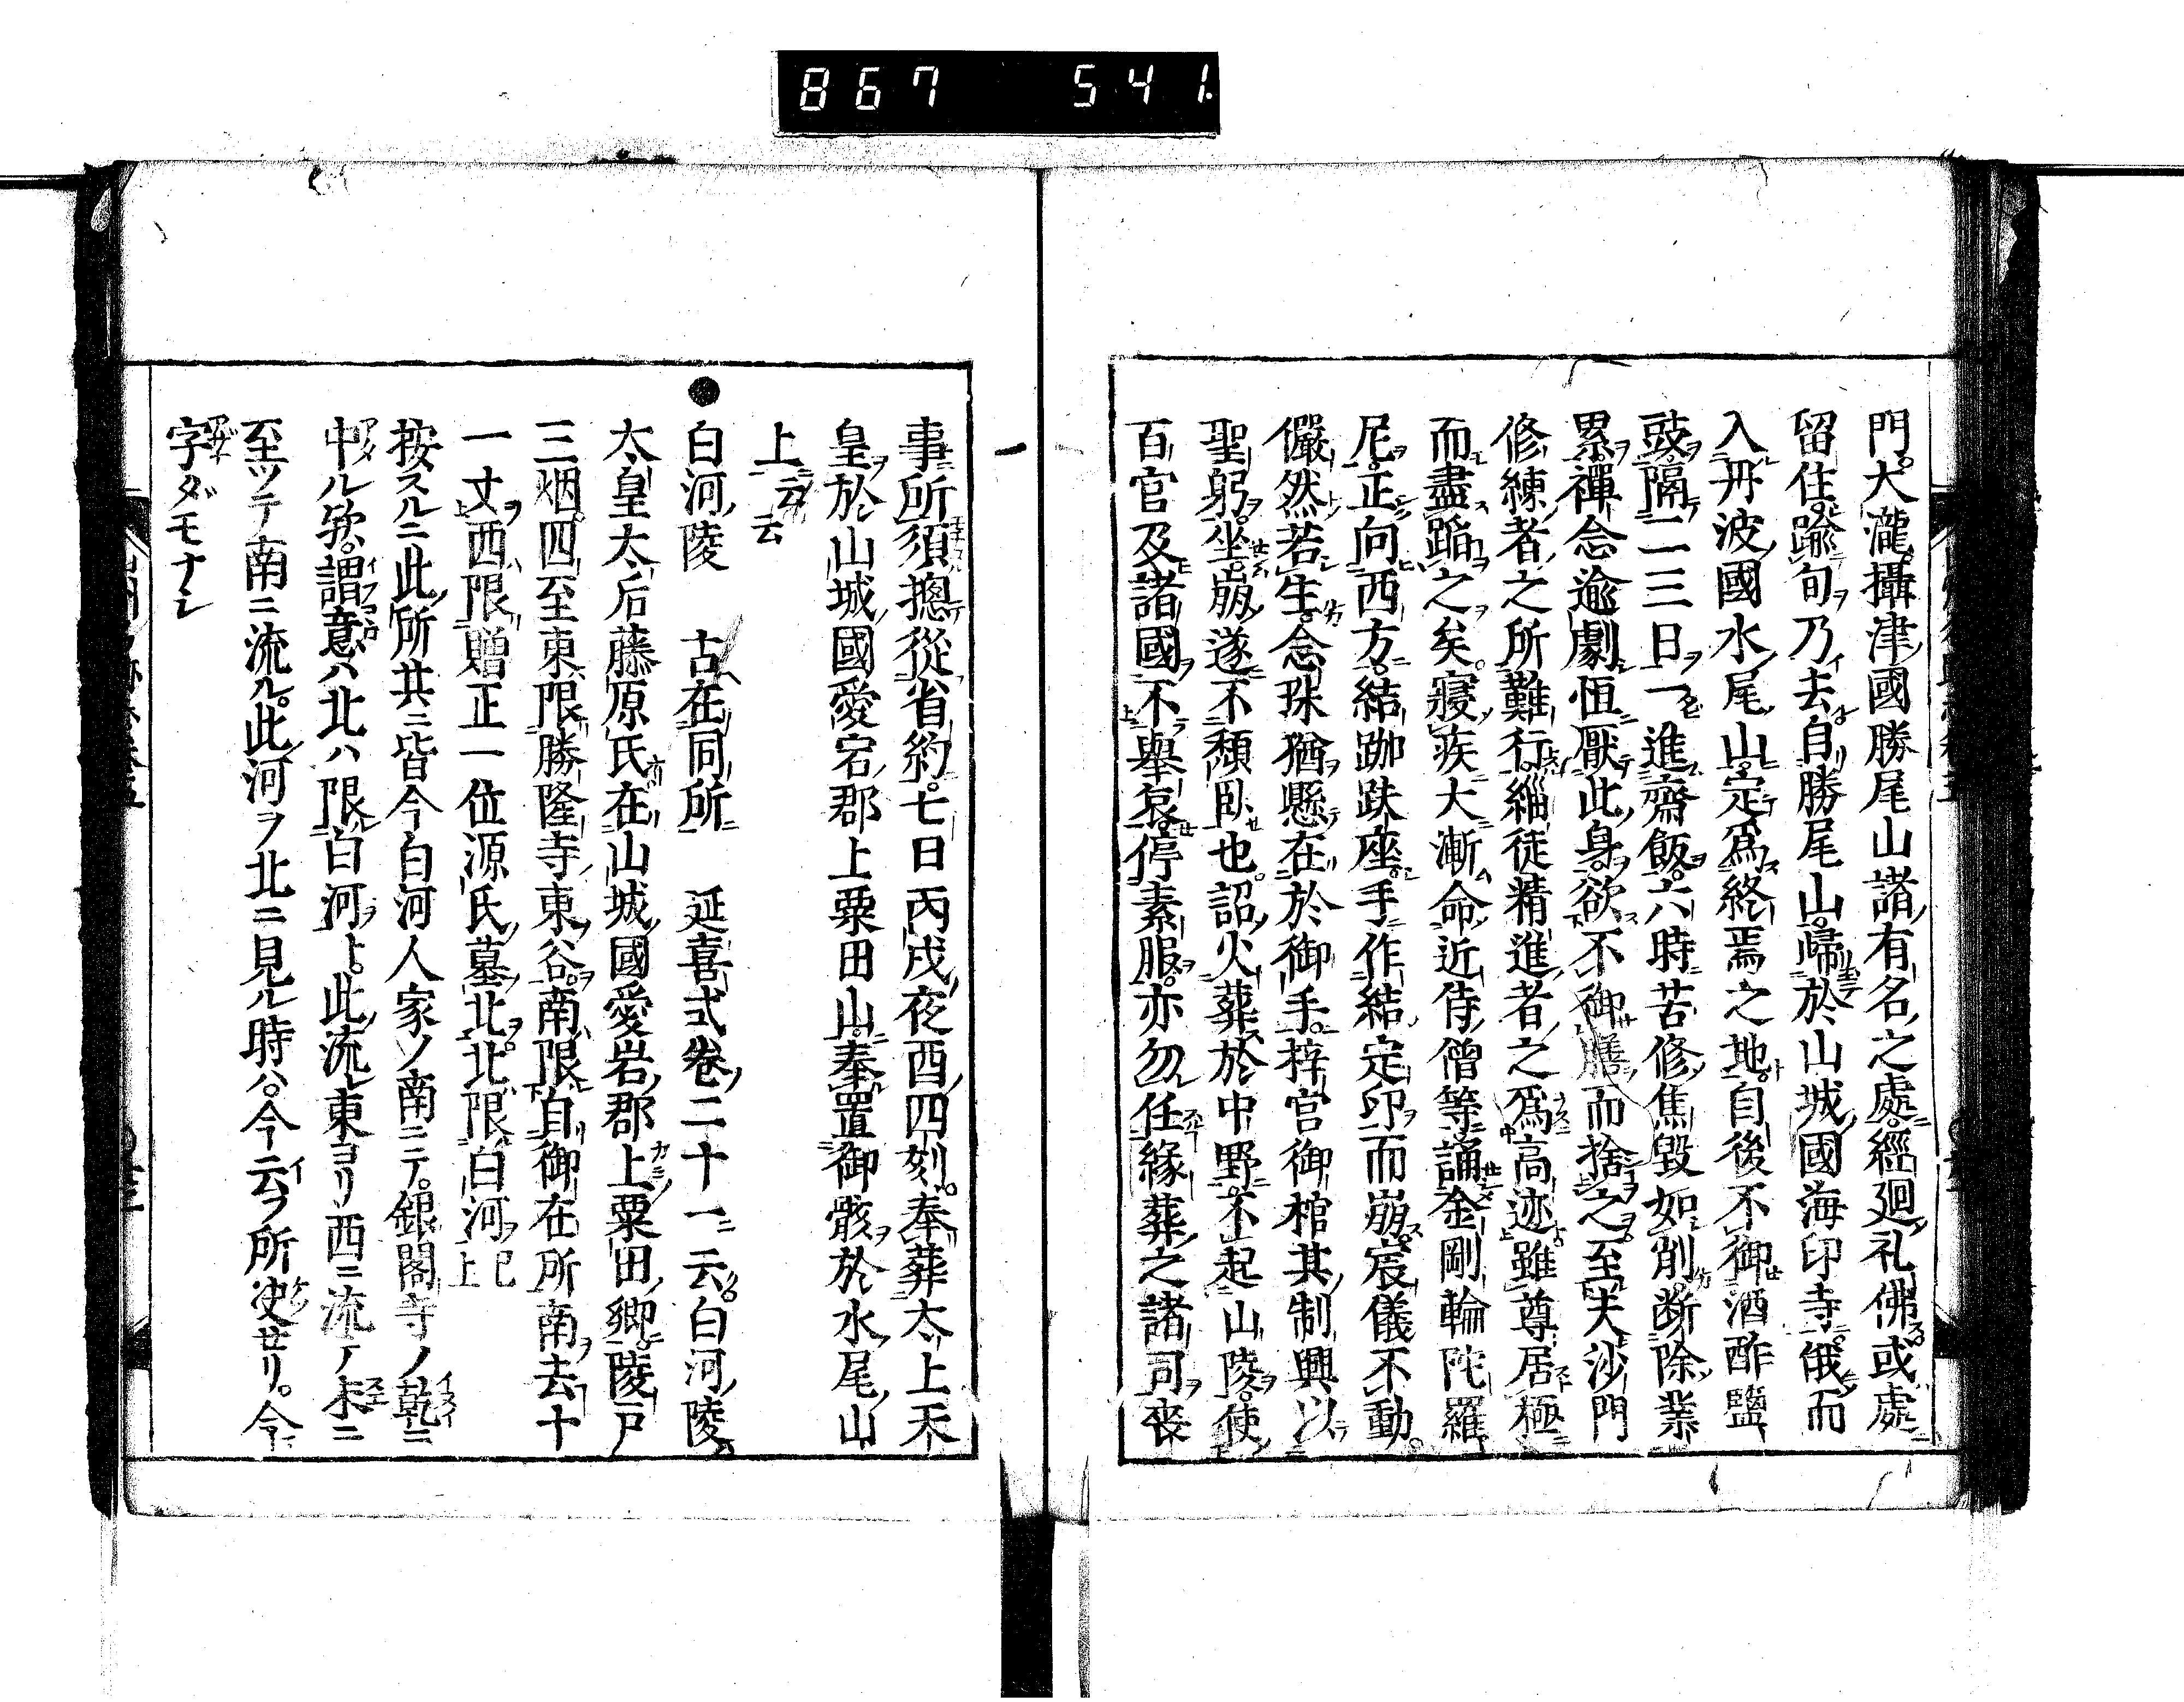 867 541
門大瀧攝津國勝尾山諸有名之處經廻礼佛或處
留住踰旬乃去自勝尾山歸於山城國海印寺俄而
入丹波國水尾山定爲終焉之地自後不御酒酢鹽
豉隔二三日一進齋飯六時苦修焦毀如削断除業
累禪念逾劇恒厭此身欲不御膳而捨之至夫沙門
修練者之所難行緇徒精進者之爲高迹雖尊居極
而盡蹈之矣寢疾大漸命近侍僧等誦金剛輪陀羅
尼正向西方結跏趺座手作結定印而崩宸儀不動
儼然若生念珠猶懸在於御手梓宮御棺其制興以
聖躬坐崩遂不頽臥也詔火葬於中野不起山陵使
百官及諸國不舉哀停素服亦勿任緣葬之諸司喪
事所須摠從省約七日丙戌夜酉四刻奉葬太上天
皇於山城國愛宕郡上粟田山奉置御骸於水尾山
上云云
●白河陵 古在同所 延喜式卷二十一云白河陵
太皇太后藤原氏在山城國愛宕郡上粟田郷陵戸
三烟四至東限勝隆寺東谷南限自御在所南去十
一丈西限贈正一位源氏墓北北限白河已上
按スルニ此所其ニ皆今白河人家ノ南ニテ銀閣寺ノ乾ニ
中ル欤謂意ハ北ハ限白河ト此流東ヨリ西ニ流テ末ニ
至ツテ南ニ流ル此河ヲ北ニ見ル時ハ今云フ所决せリ令
字ダモナシ